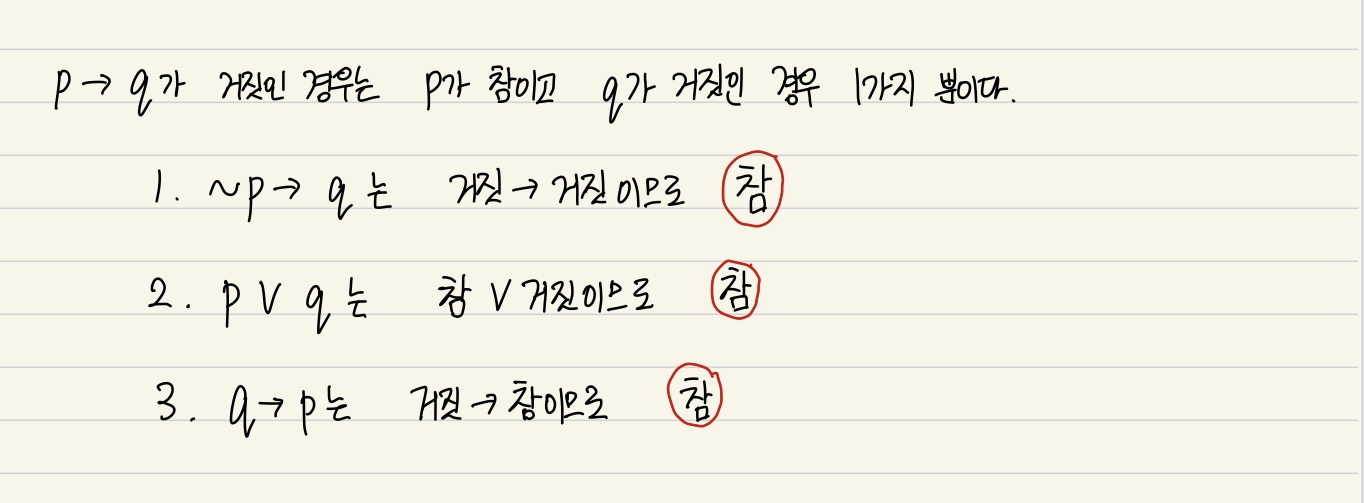 p → q가 거짓인 경우는 p가 참이고 q가 거짓인 경우 1가지 뿐이다.
1. ~p → q 는 거짓 → 거짓이므로 참
2. p ∨ q 는 참 ∨ 거짓이므로 참
3. q → p는 거짓 → 참이므로 참